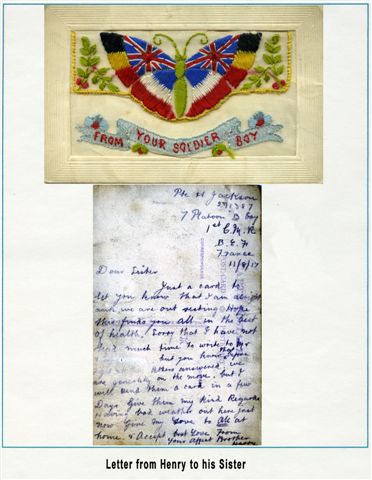 FROM YOUR SOLDIER BOY
Pte H Jackson
7 Platoon B Coy
1st C.M.R.
B.E.F
France
11/8/17
Dear Sister
Just a card to
let you know that I am alright
and we are out resting Hope
this finds you all in the best
of health. Sorry that I have not
had much time to write to
but you know
letters answered, we
are generally on the move, but I
will send them a card in a few
Days Give them my kind Regards
Having bad weather out here just
now Give my love to All at
home & Accept best Love From
Your Affect Brother
Harry
Letter from Henry to his Sister